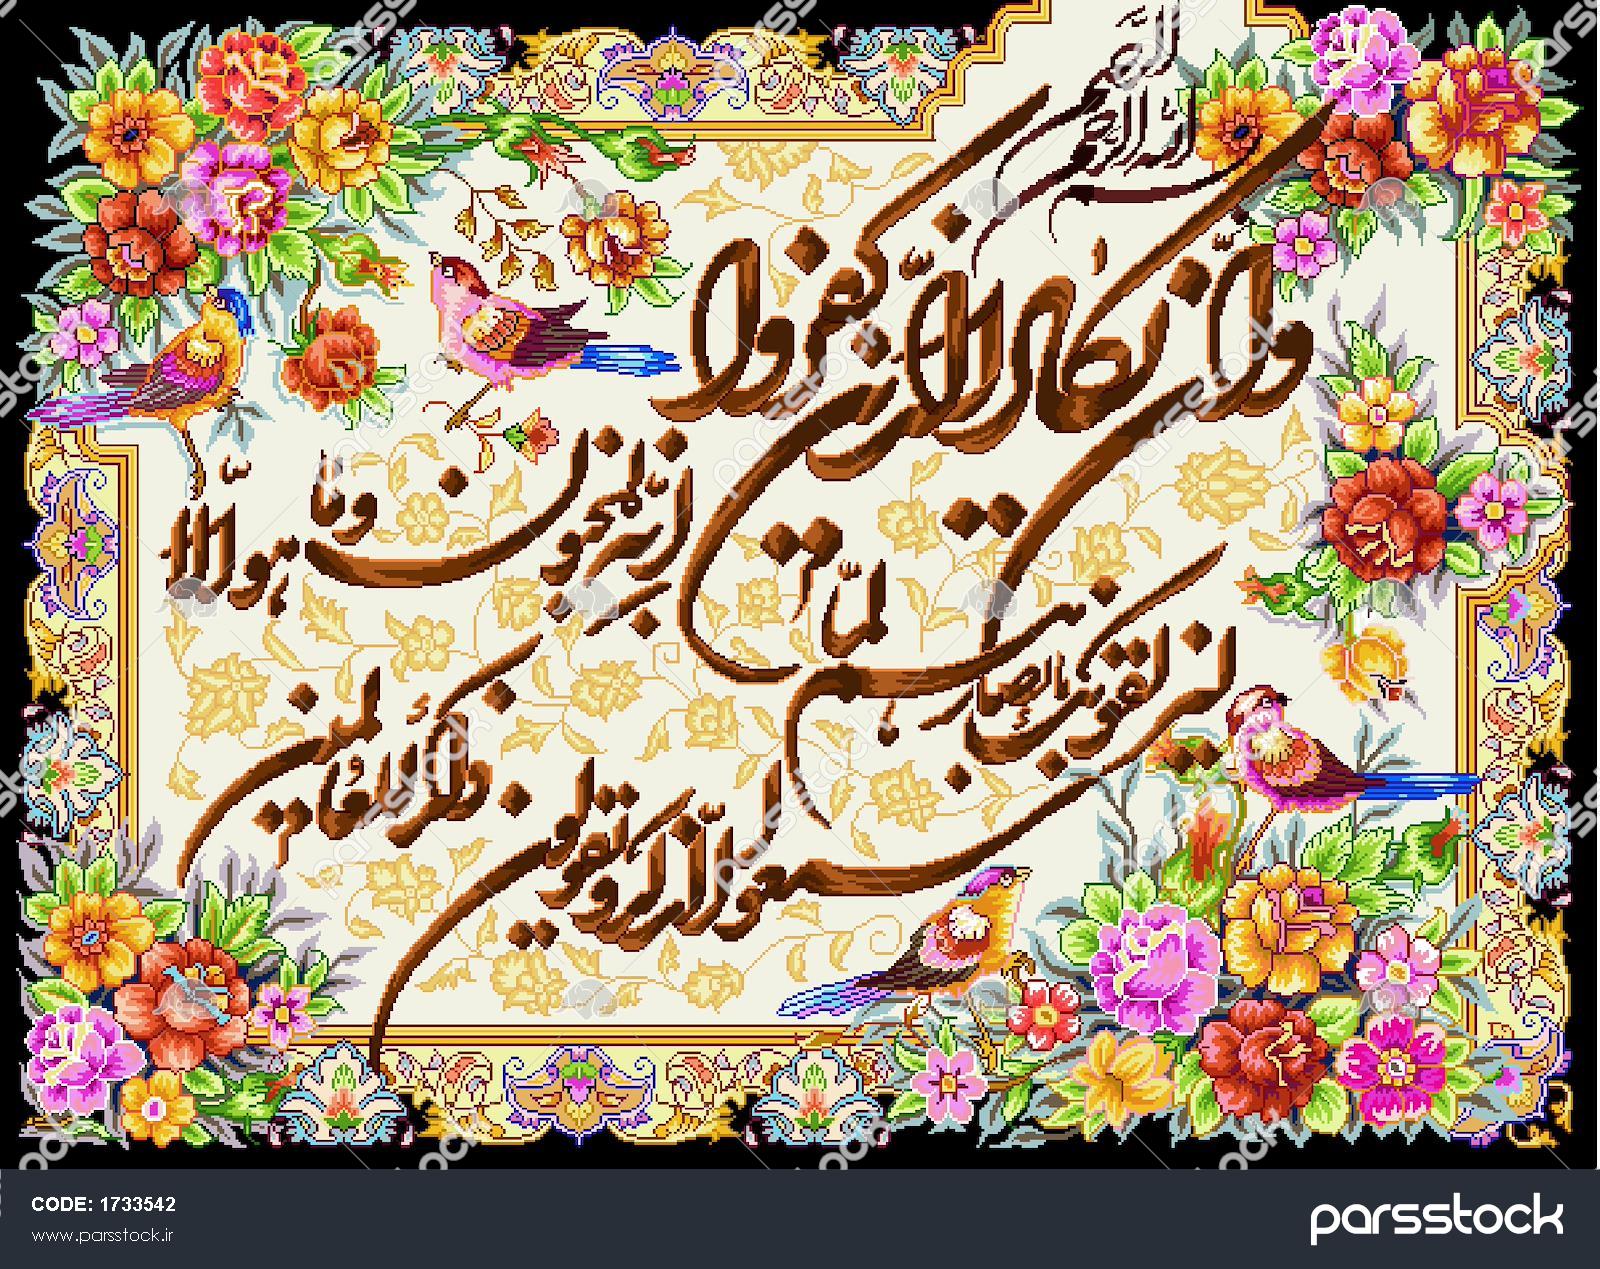 بسم الله الرحمن الرحیم
وان یکاد الذین کفروا
لیزلقونک بابصارهم لما
سمعوا الذکر ویقولون
انه لمجنون وما هو الا
ذکر للعالمین
CODE: 1733542
www.parsstock.ir
parsstock